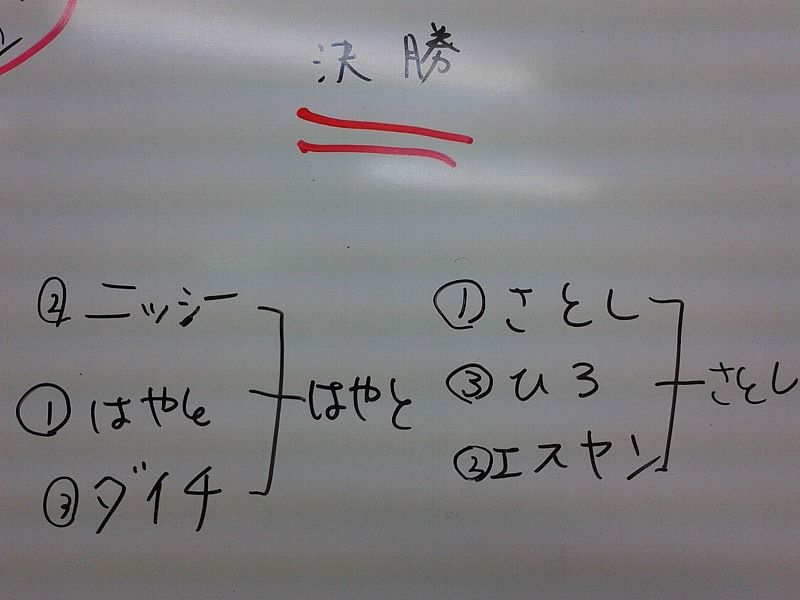 決勝
②ニッシー
①はやと
③ダイチ
はやと
①さとし
③ひろ
②エスヤン
さとし